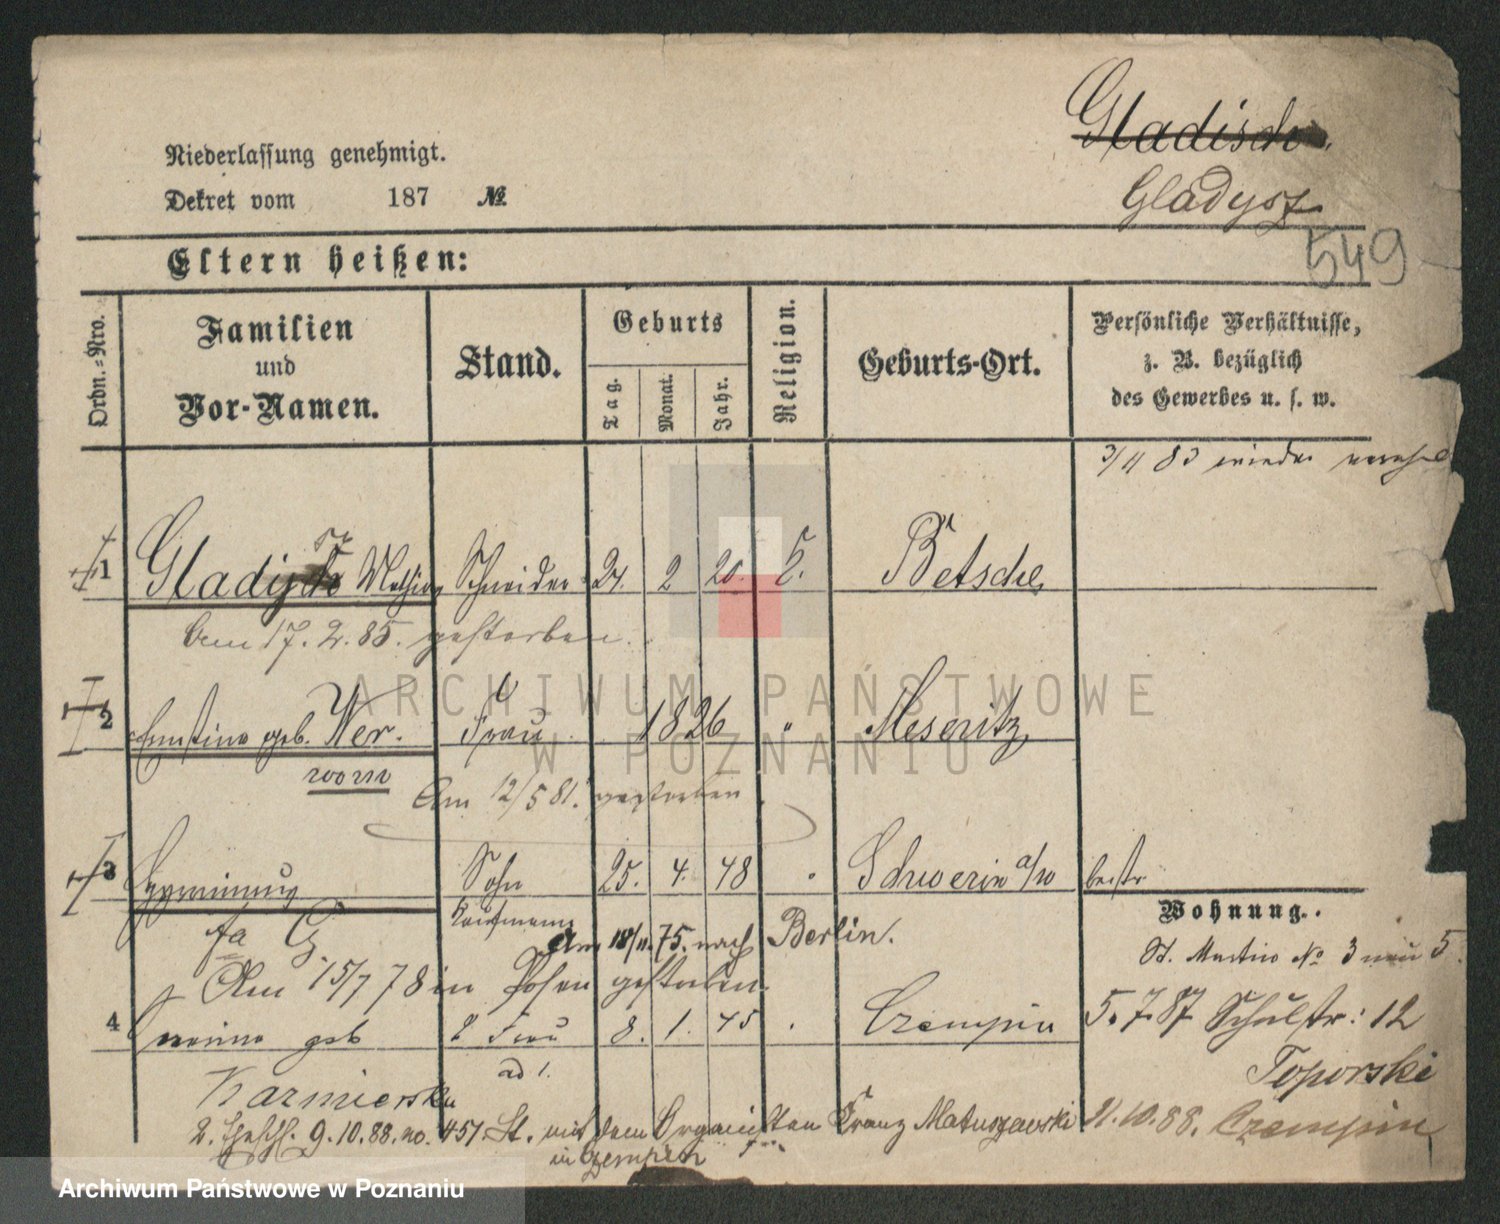 Gladisch.
Niederlassung genehmigt.
Dekret vom 187 №
Gladysz
549
Eltern heißen:
Ordn.-Nro.
Familien
und
Vor-Namen.
Stand.
Geburts
Tag.
Monat.
Jahr.
Religion.
Geburts-Ort.
Persönliche Verhältnisse,
z. B. bezüglich
des Gewerbes u. s. w.
3/11 83 wieder
1 Schneider 24. 2 20. Betsche
Am 17. 2. 85. gestorben.
2 Ernstine geb. Wer. Frau 1826 " Meseritz
Am 12/5 81. gestorben
3 Sohn 25. 4. 48 Schwerin a/w
Kaufmann
Am 18/11. 75. nach Berlin.
Wohnung.
St. Martin No 3 neu 5.
Am 15/7 78 in Posen gestorben.
4 geb 2 Frau 8. 1. 45 Czempin
ad 1.
5. 7. 87 Schulstr: 12
Toporski
Kazmierska
9.10.88. no. 457. St. mit dem Organisten Franz Matuszewski 21.10.88. Czempin
in Czempin
ARCHIWUM PAŃSTWOWE
W POZNANIU
Archiwum Państwowe w Poznaniu